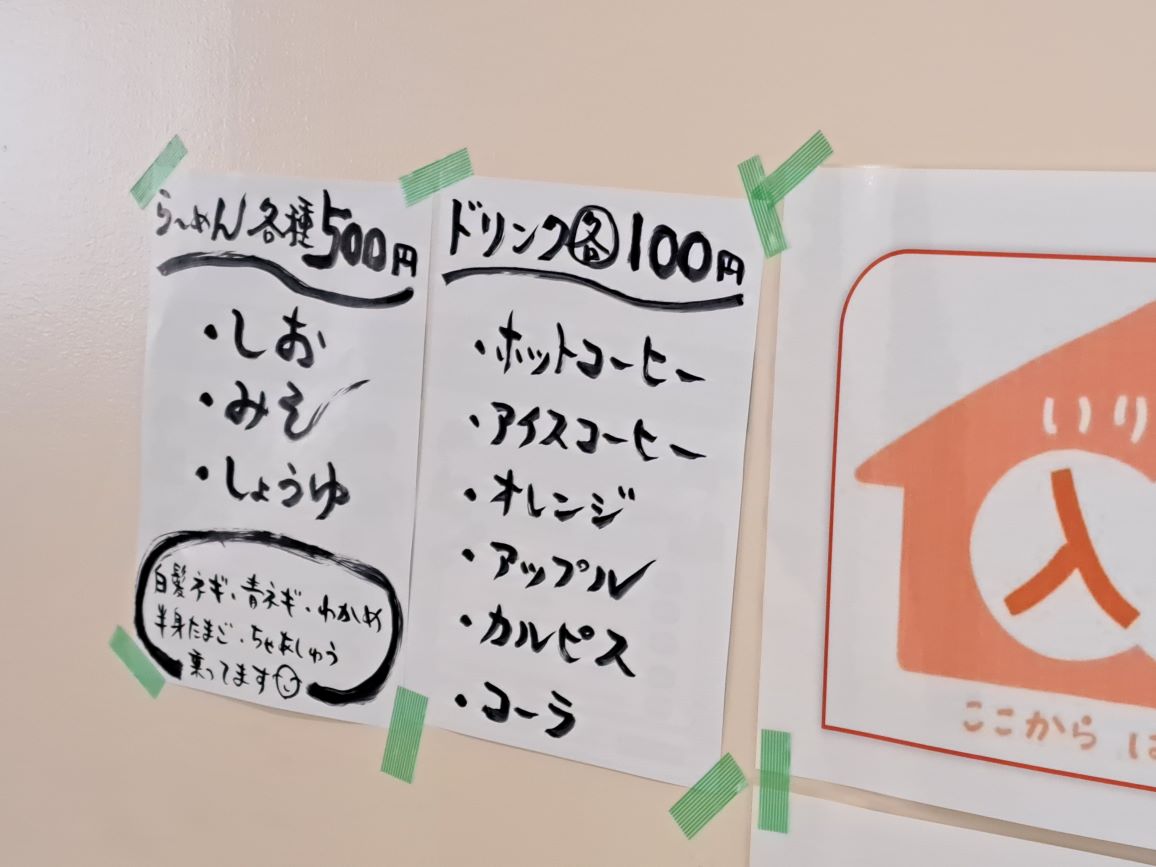 らーめん各種500円
・しお
・みそ
・しょうゆ
白髪ネギ、青ネギ、わかめ
半身たまご、ちゃあしゅう
乗ってます
ドリンク各100円
・ホットコーヒー
・アイスコーヒー
・オレンジ
・アップル
・カルピス
・コーラ
いり
入
ここから は